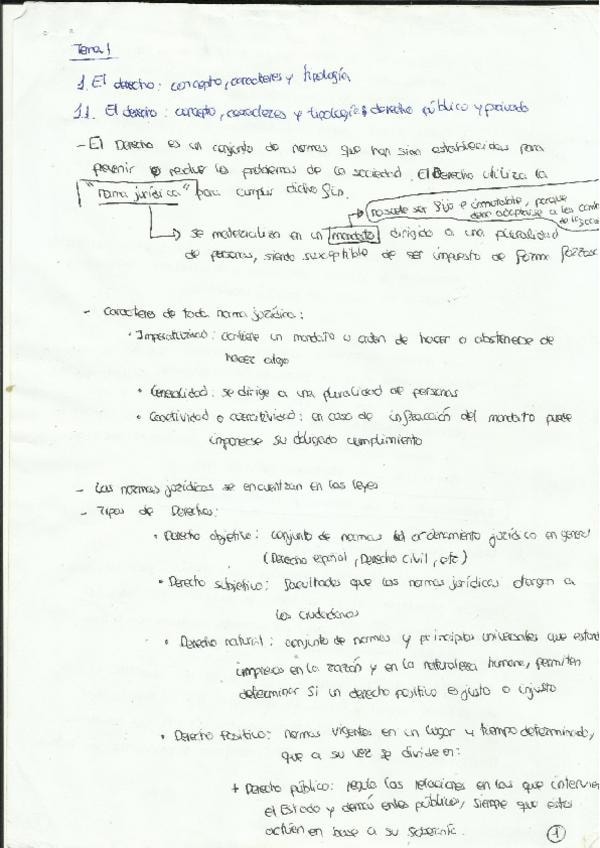 Tema 1
1. El derecho: concepto, caracteres y tipología
1.1. El derecho: concepto, caracteres y tipología: derecho público y privado
- El Derecho es un conjunto de normas que han sido establecidas para
prevenir o reducir los problemas de la sociedad. El Derecho utiliza la
"norma jurídica" para cumplir dicho fin.
no suele ser fijo e inmutable, porque
debe adaptarse a los
de la
se materializa en un mandato dirigido a una pluralidad
de personas, siendo susceptible de ser impuesto de forma
- Caracteres de toda norma jurídica:
· Imperatividad: contiene un mandato u orden de hacer o abstenerse de
hacer algo
· Generalidad: se dirige a una pluralidad de personas
· Coactividad o coercitividad: en caso de infracción del mandato puede
imponerse su obligado cumplimiento
- Las normas jurídicas se encuentran en las leyes
- Tipos de Derechos:
· Derecho objetivo: conjunto de normas del ordenamiento jurídico en general
(Derecho español, Derecho civil, etc)
· Derecho subjetivo: facultades que las normas jurídicas otorgan a
los ciudadanos
· Derecho natural: conjunto de normas y principios universales que
impresos en la razón y en la naturaleza humana, permiten
determinar si un derecho positivo es justo o injusto
· Derecho Positivo: normas vigentes en un lugar y tiempo determinado,
que a su vez se divide en:
+ Derecho público: regula las relaciones en las que
el Estado y demás entes públicos, siempre que estos
actúen en base a su soberanía.
1